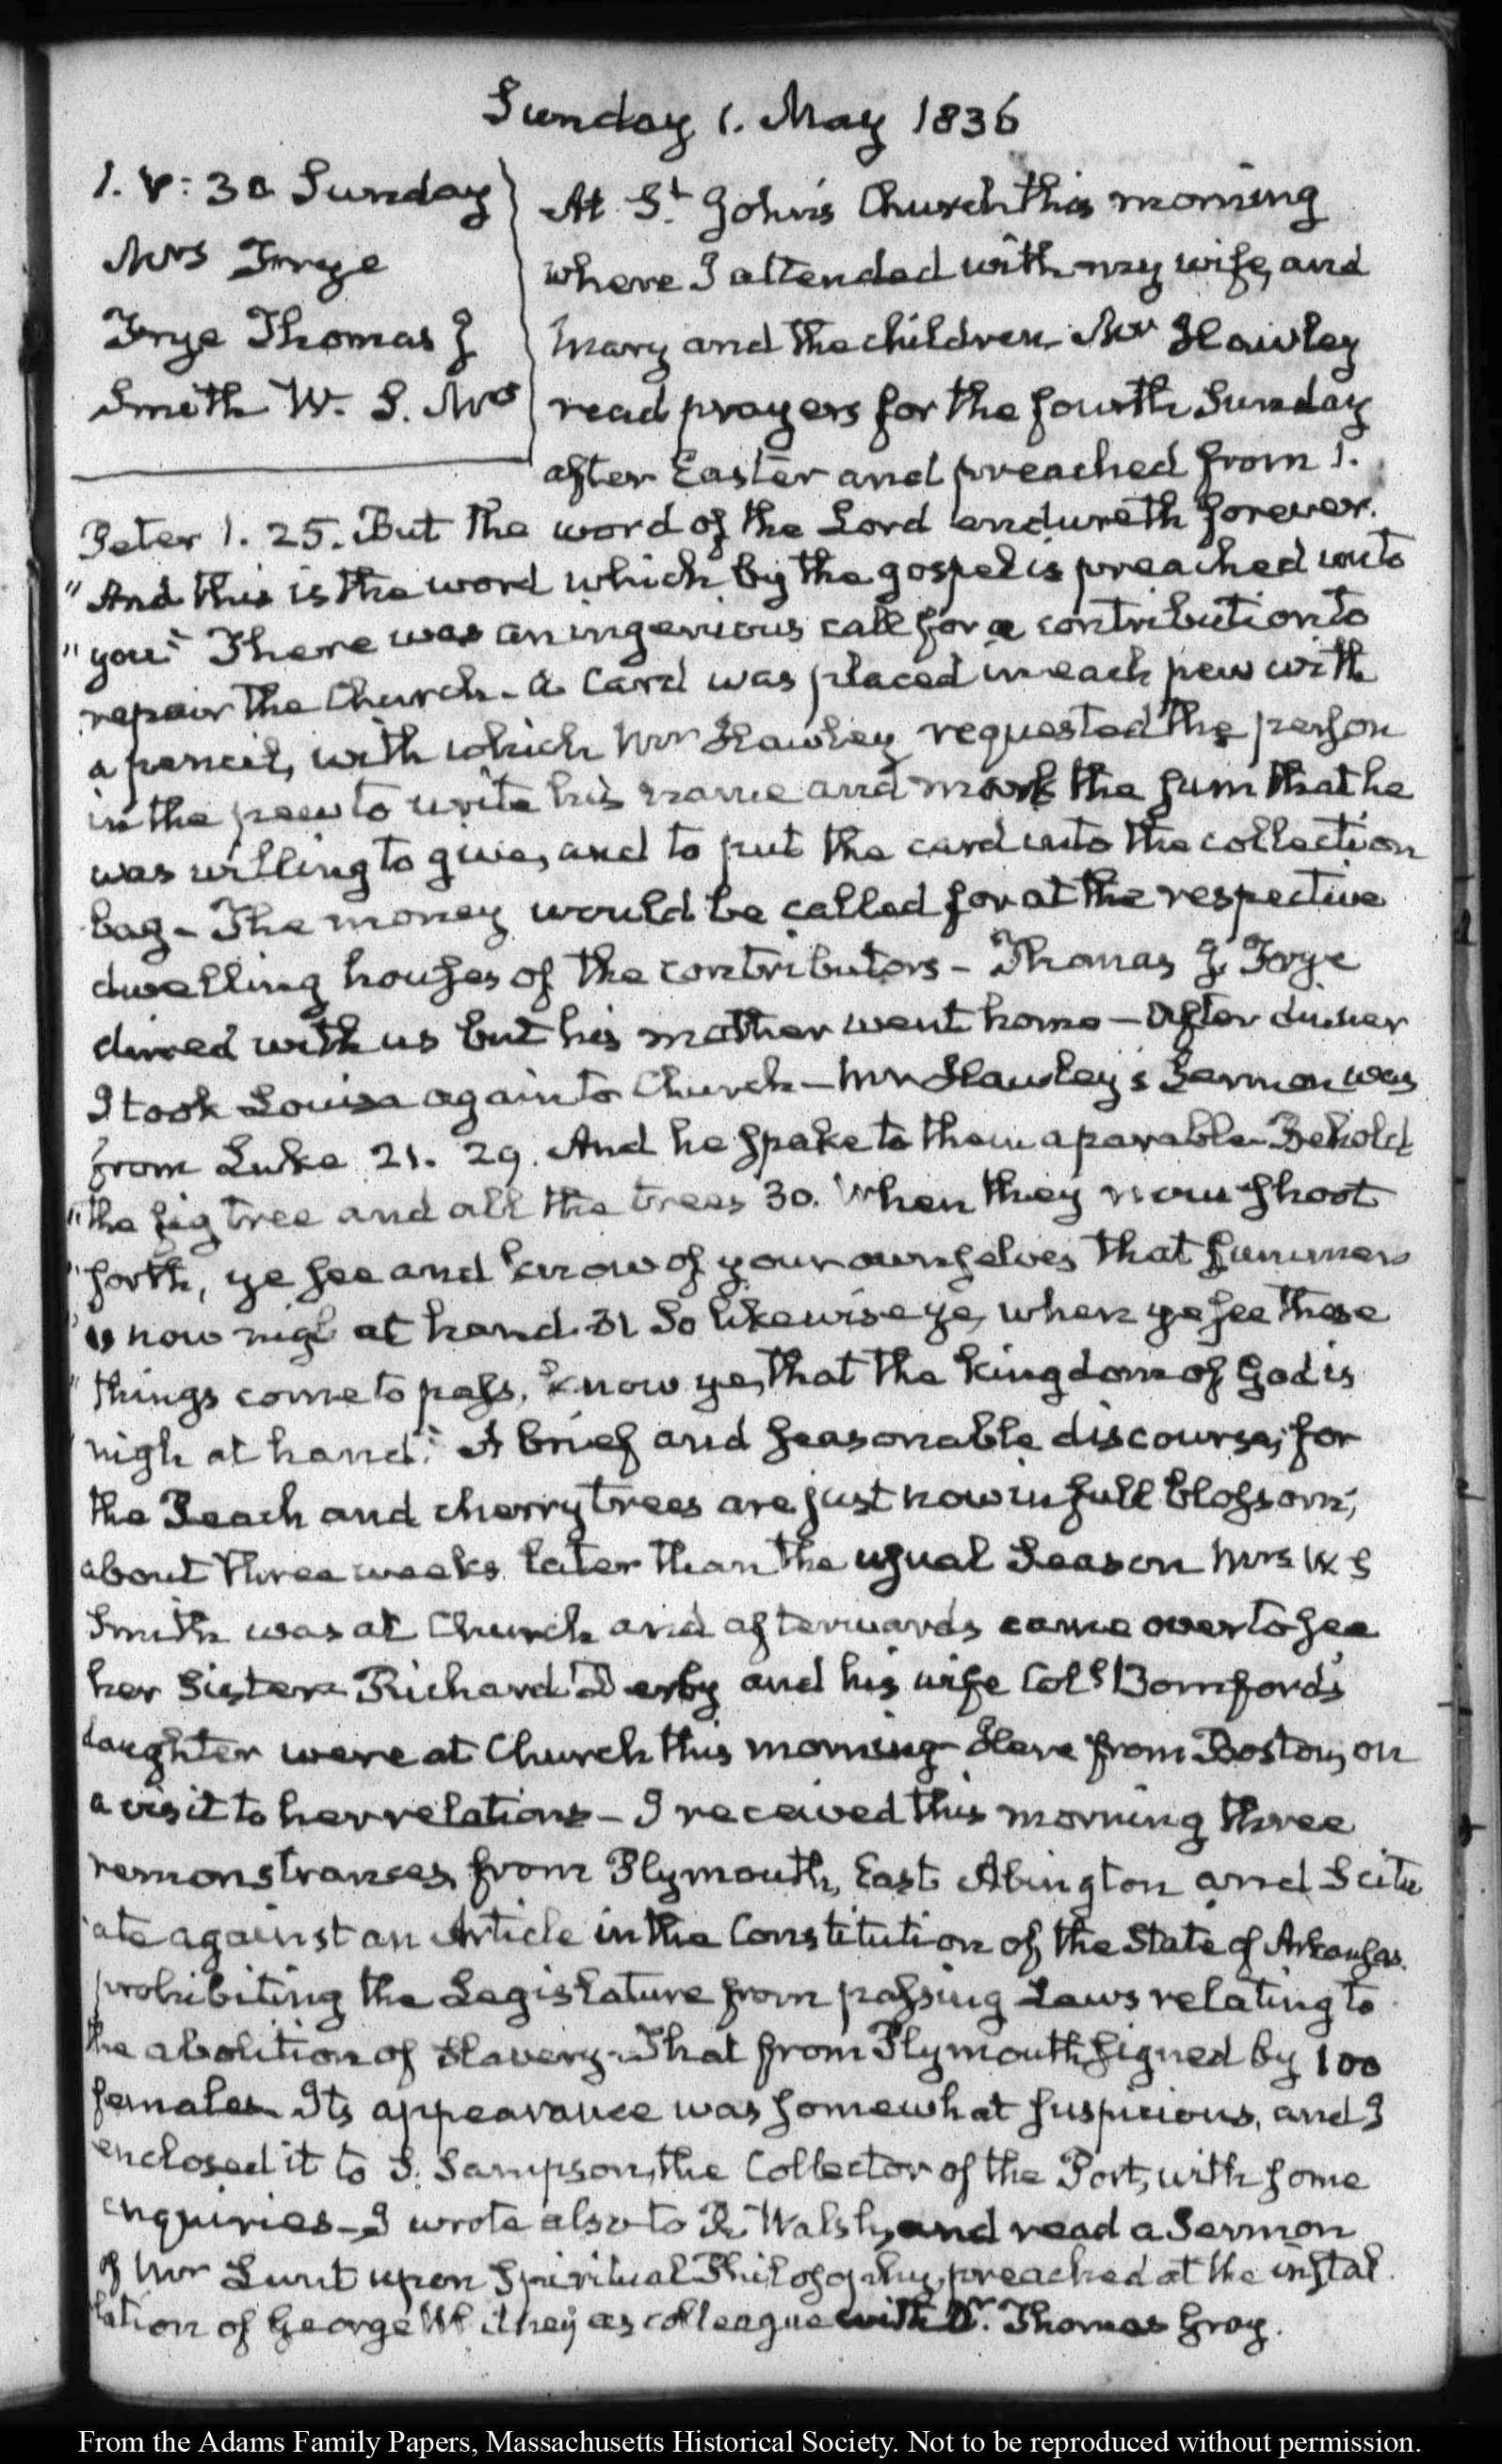 Sunday 1. May 1836
1. V: 30 Sunday
Mrs Frye
Frye Thomas J
Smith W. S. Mrs
At St John's Church this morning
where I attended with my wife, and
Mary and the children Mr Hawley
read prayers for the fourth Sunday
after Easter and preached from 1.
Peter 1. 25. But the word of the Lord endureth forever.
"And this is the word which by the gospel is preached unto
"you" There was an ingenious call for a contribution to
repair the Church - a Card was placed in each pew with
a pencil, with which Mr Hawley requested the person
in the pew to write his name and mark the sum that he
was willing to give, and to put the card into the collection
bag - The money would be called for at the respective
dwelling houses of the contributors - Thomas J. Frye
dined with us but his mother went home - After dinner
I took Louisa again to Church - Mr Hawley's Sermon was
from Luke 21. 29. And he spake to them a parable Behold
"the fig tree and all the trees 30. When they now shoot
"forth, ye see and know of your own selves that summer
"is now nigh at hand 31 So likewise ye, when ye see these
"things come to pass, know ye, that the kingdom of God is
"nigh at hand." A brief and seasonable discourse; for
the Peach and cherry trees are just now in full blossom;
about three weeks later than the usual Season Mrs W S
Smith was at Church and afterwards came over to see
her Sister - Richard Derby and his wife Coll Bomford's
daughter were at Church this morning - Here from Boston, on
a visit to her relations - I received this morning three
remonstrances, from Plymouth, East Abington and Scitu
ate against an Article in the Constitution of the State of Arkansas.
prohibiting the Legislature from passing Laws relating to
the abolition of Slavery - That from Plymouth signed by 100
females. Its appearance was somewhat suspicious, and I
enclosed it to S. Sampson, the Collector of the Port, with some
enquiries - I wrote also to R. Walsh, and read a Sermon
of Mr Lunt upon Spiritual Philosophy, preached at the instal
lation of George Whitney as colleague with Dr. Thomas Gray.
From the Adams Family Papers, Massachusetts Historical Society. Not to be reproduced without permission.